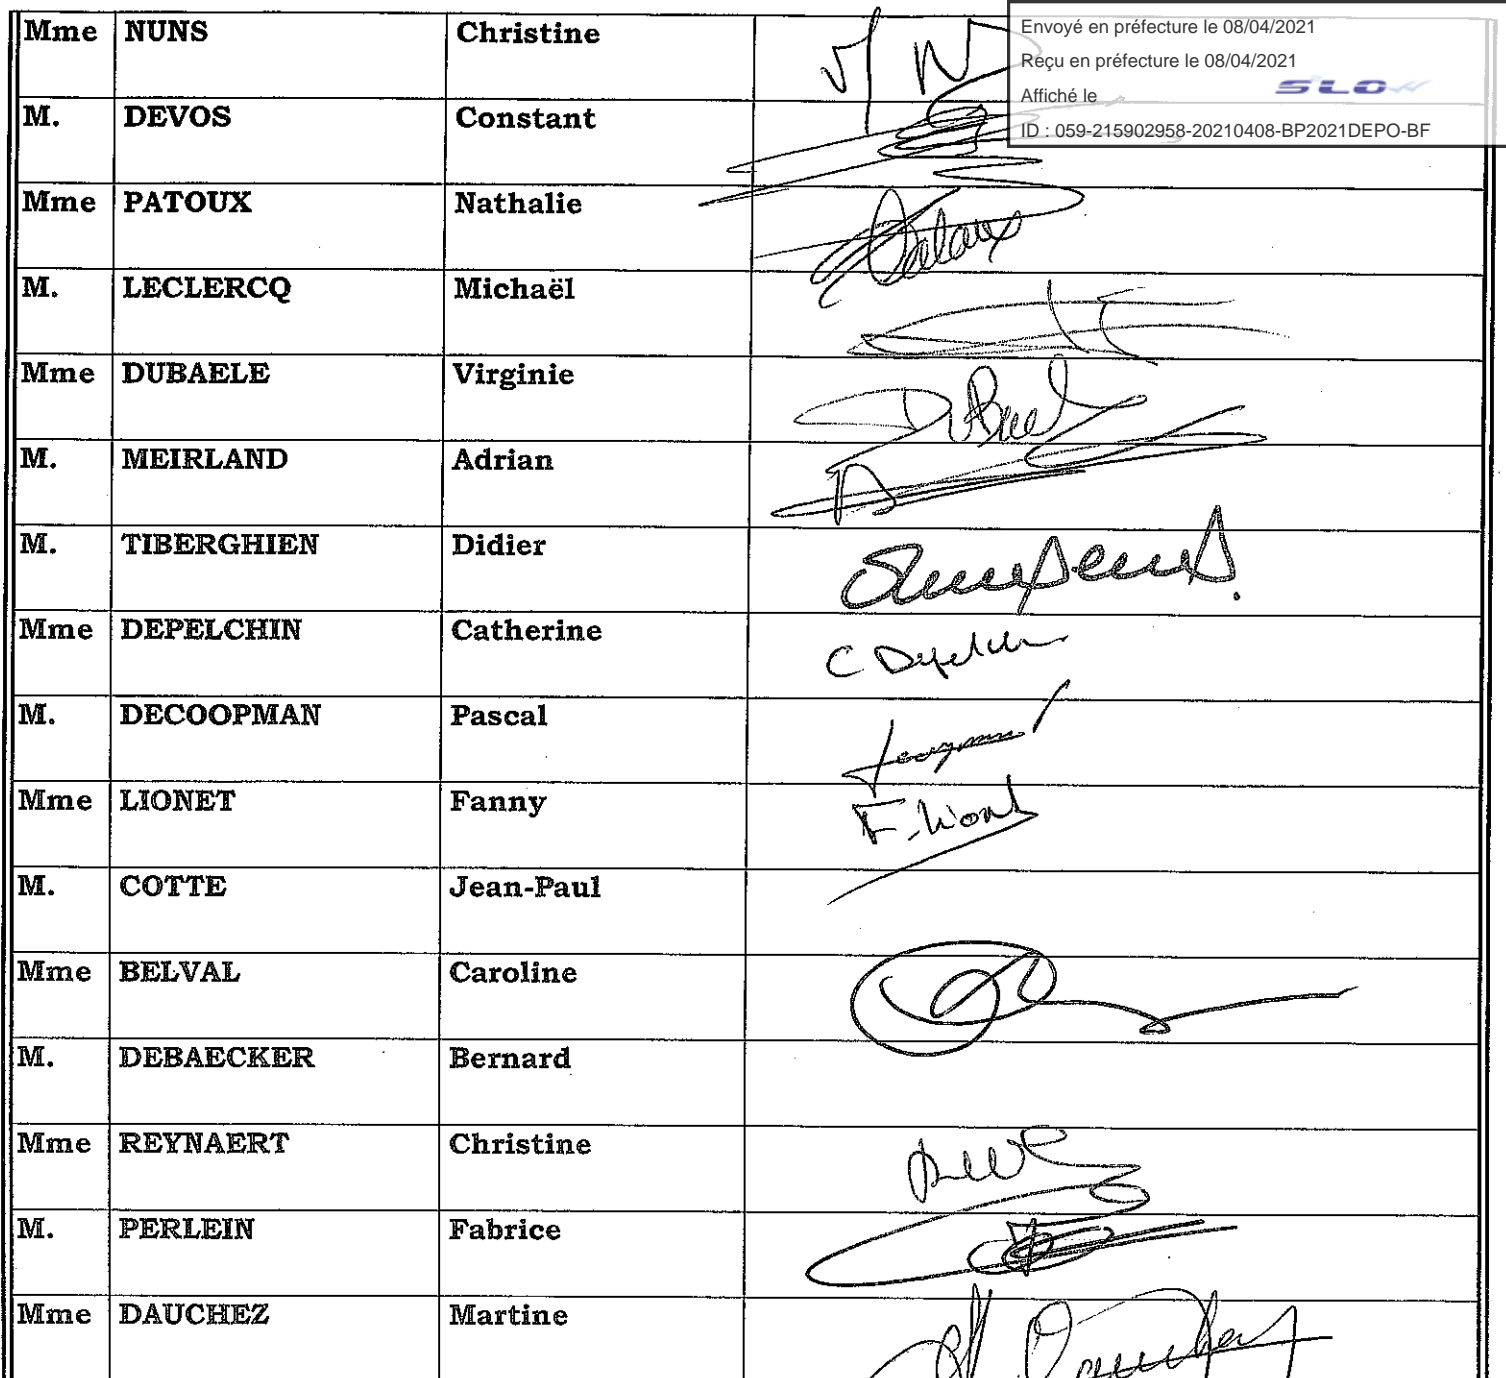 Envoyé en préfecture le 08/04/2021
Reçu en préfecture le 08/04/2021
Affiché le
SLOW
ID : 059-215902958-20210408-BP2021DEPO-BF
Mme NUNS Christine
M. DEVOS Constant
Mme PATOUX Nathalie
M. LECLERCQ Michaël
Mme DUBAELE Virginie
M. MEIRLAND Adrian
M. TIBERGHIEN Didier
Mme DEPELCHIN Catherine C Depelchin
M. DECOOPMAN Pascal
Mme LIONET Fanny F. Lionet
M. COTTE Jean-Paul
Mme BELVAL Caroline
M. DEBAECKER Bernard
Mme REYNAERT Christine
M. PERLEIN Fabrice
Mme DAUCHEZ Martine